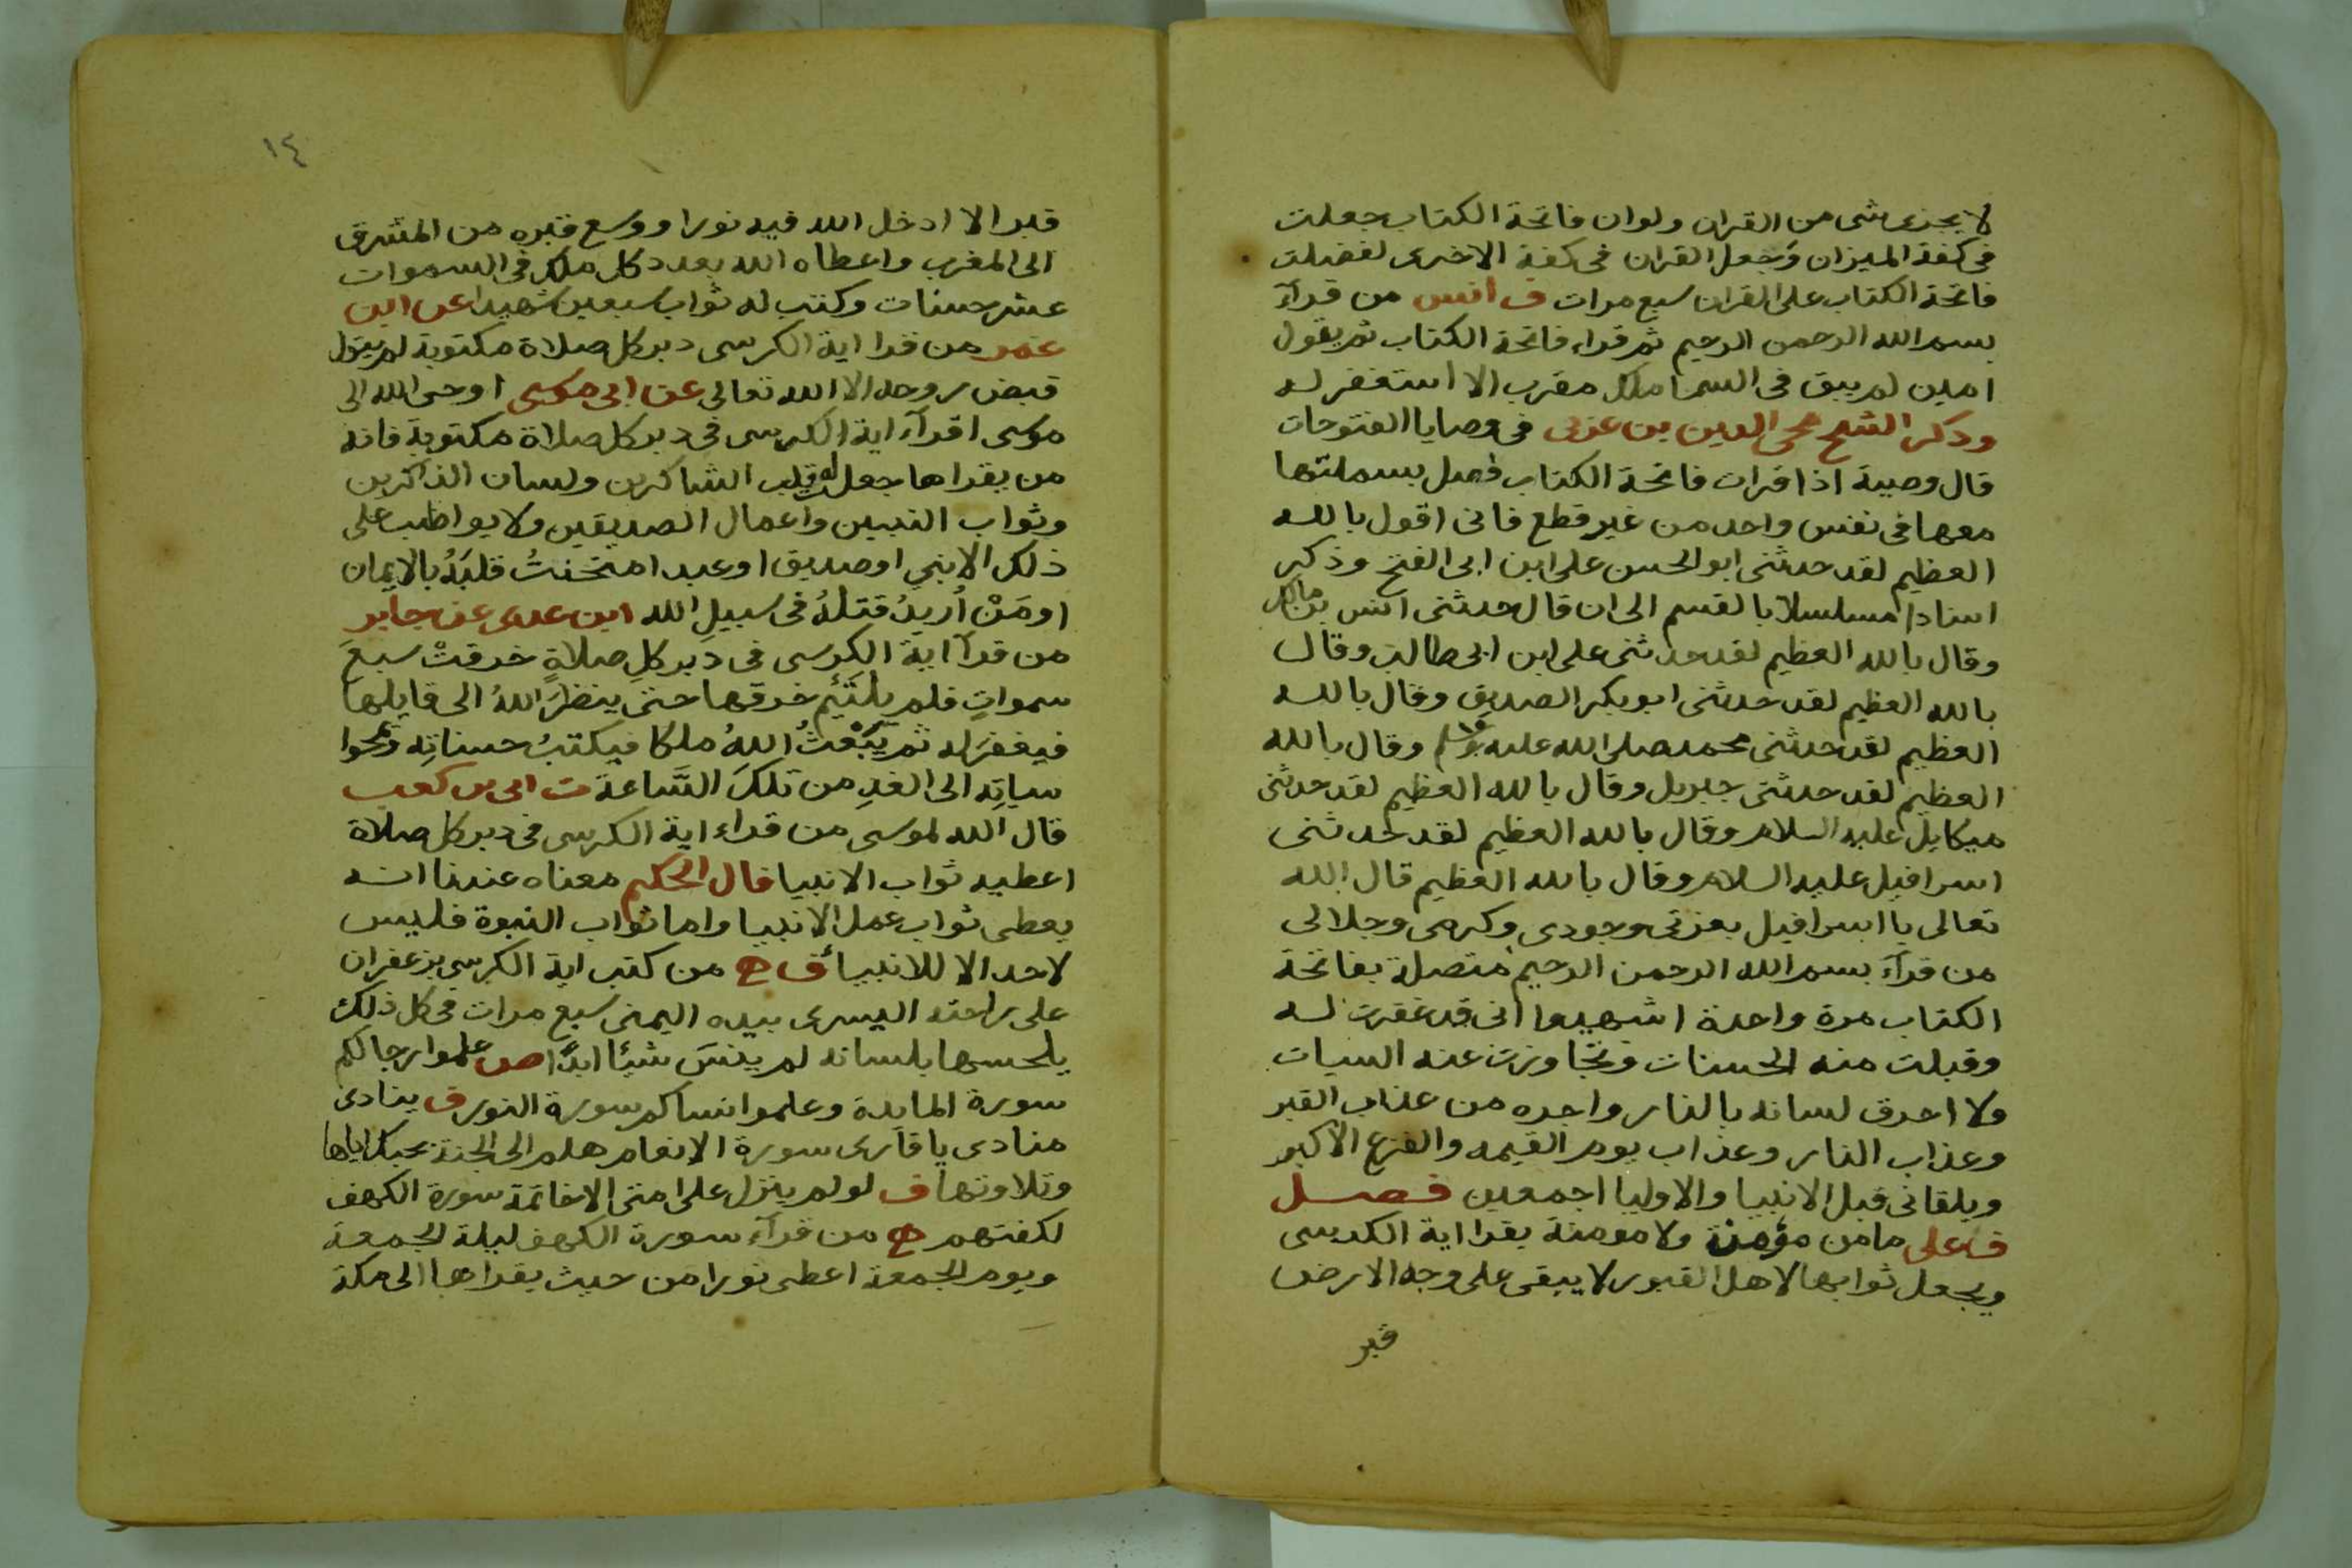 لا يجزى شى من القران ولو ان فاتحة الكتاب جعلت
فى كفة الميزان وَجُعل القران فى كفة الاخرى لفضلت
فاتحة الكتاب على القران سبع مرات ف أنس من قرآء
بسم الله الرحمن الرحيم ثم قراء فاتحة الكتاب ثم يقول
امين لم يبق فى السما ملك مقرب الا استغفر له
وذكر الشيخ محى الدين بن عربى فى وصايا الفتوحات
قال وصية اذا قرات فاتحة الكتاب فصل بسملتها
معها فى نفس واحد من غير قطع فانى اقول بالله
العظيم لقد حدثنى ابو الحسن على ابن ابى الفتح وذكر
اسنادا مسلسلا بالقسم الى ان قال حدثنى انس بن مالك
وقال بالله العظيم لقد حدثنى على ابن ابى طالب وقال
بالله العظيم لقد حدثنى ابو بكر الصديق وقال بالله
العظيم لقد حدثنى محمد صلى الله عليه وسلم وقال بالله
العظيم لقد حدثنى جبريل وقال بالله العظيم لقد حدثنى
ميكايل عليه السلام وقال بالله العظيم لقد حدثنى
اسرافيل عليه السلام وقال بالله العظيم قال الله
تعالى يا اسرافيل بعزتى وجودى وكرمى وجلالى
من قرآء بسم الله الرحمن الرحيم متصلة بفاتحة
الكتاب مرة واحدة اشهدوا انى قد غفرت له
وقبلت منه الحسنات وتجاوزت عنه السيات
ولا احرق لسانه بالنار واجره من عذاب القبر
وعذاب النار وعذاب يوم القيمه والفزع الاكبر
ويلقانى قبل الانبيا والاوليا اجمعين فصل
ف على ما من مؤمن ولا مومنة يقرا اية الكرسى
ويجعل ثوابها لاهل القبور لا يبقى على وجه الارض
قبر
١٤
قبرا الا ادخل الله فيه نورا ووسع قبره من المشرق
الى المغرب واعطاه الله بعدد كل ملك فى السموات
عشر حسنات وكتب له ثواب سبعين شهيدا عن ابن
عمر من قرا اية الكرسى دبر كل صلاة مكتوبة لم يتول
قبض روحه الا الله تعالى عن ابى موسى اوحى الله الى
موسى اقرآء اية الكرسى فى دبر كل صلاة مكتوبة فانه
من يقراها جعل له قلب الشاكرين ولسان الذاكرين
وثواب النبيين واعمال الصديقين ولا يواظب على
ذلك الا نبي او صديق او عبد امتحنتُ قلبَهُ بالايمان
او مَنْ اُريدُ قتلهُ فى سبيلِ الله ابن عدى عن جابر
من قرآ اية الكرسى فى دبر كلِ صلاةٍ خرقتْ سبعَ
سمواتٍ فلم يلتَئِم خرقها حتى ينظرَ اللهُ الى قايلها
فيغفرَ له ثم يَبْعَثُ اللهُ ملكا فيكتبُ حسناتِه ويمحوا
سياتِه الى الغدِ من تلكَ السَّاعة ت ابى بن كعب
قال الله لموسى من قراء اية الكرسى فى دبر كل صلاة
اعطيه ثواب الانبيا قال الحكيم معناه عندنا انه
يعطى ثواب عمل الانبيا واما ثواب النبوة فليس
لاحد الا للانبيا ق ح من كتب اية الكرسى بزعفران
على راحته اليسرى بيده اليمنى سبع مرات فى كل ذلك
يلحسها بلسانه لم ينسَ شيئا ابدًا ص علموا رجالكم
سورة المايدة وعلموا نساكم سورة النور ف ينادى
منادى يا قارى سورة الانعام هلم الى الجنة بحبك اياها
وتلاوتها ف لو لم ينزل على امتى الا خاتمة سورة الكهف
لكفتهم ح من قرآء سورة الكهف ليلة الجمعة
ويوم الجمعة اعطى نورا من حيث يقراها الى مكة